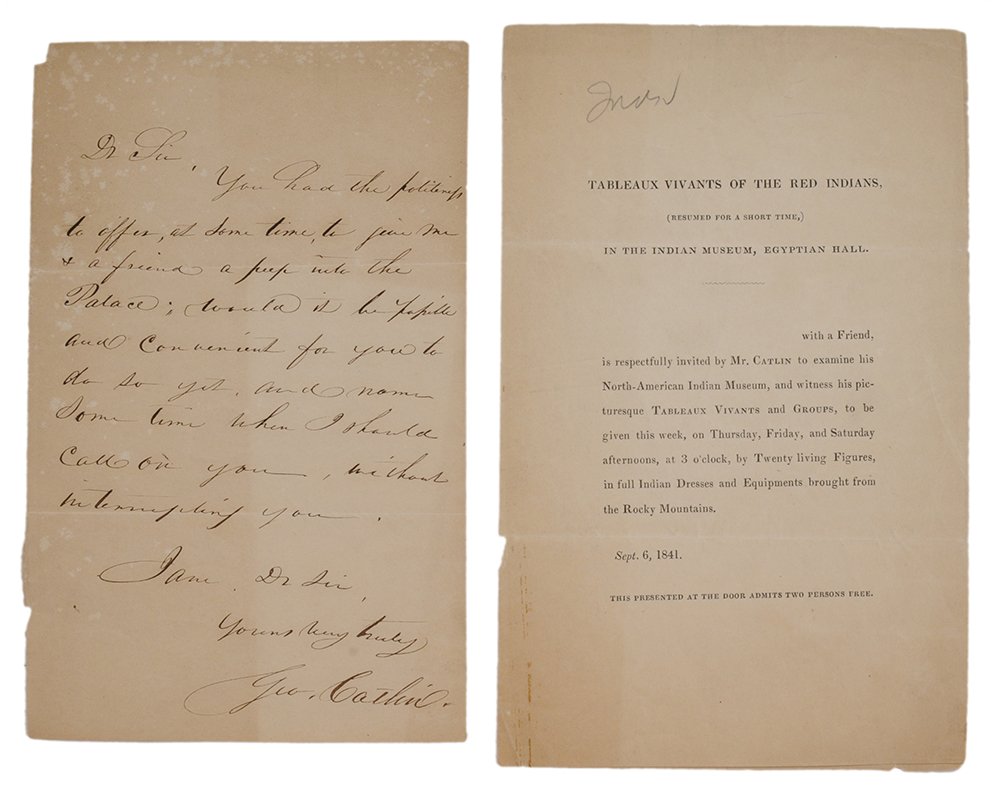 Dr Sir,
You had the politeness
to offer, at some time, to give me
& a friend a peep into the
Palace; would it be possible
and convenient for you to
do so yet, and name
some time when I should
call on you, without
interrupting you.
I am, Dr Sir,
Yours very truly
Geo. Catlin.
TABLEAUX VIVANTS OF THE RED INDIANS,
(RESUMED FOR A SHORT TIME,)
IN THE INDIAN MUSEUM, EGYPTIAN HALL.
with a Friend,
is respectfully invited by Mr. CATLIN to examine his
North-American Indian Museum, and witness his pic-
turesque TABLEAUX VIVANTS and GROUPS, to be
given this week, on Thursday, Friday, and Saturday
afternoons, at 3 o'clock, by Twenty living Figures,
in full Indian Dresses and Equipments brought from
the Rocky Mountains.
Sept. 6, 1841.
THIS PRESENTED AT THE DOOR ADMITS TWO PERSONS FREE.